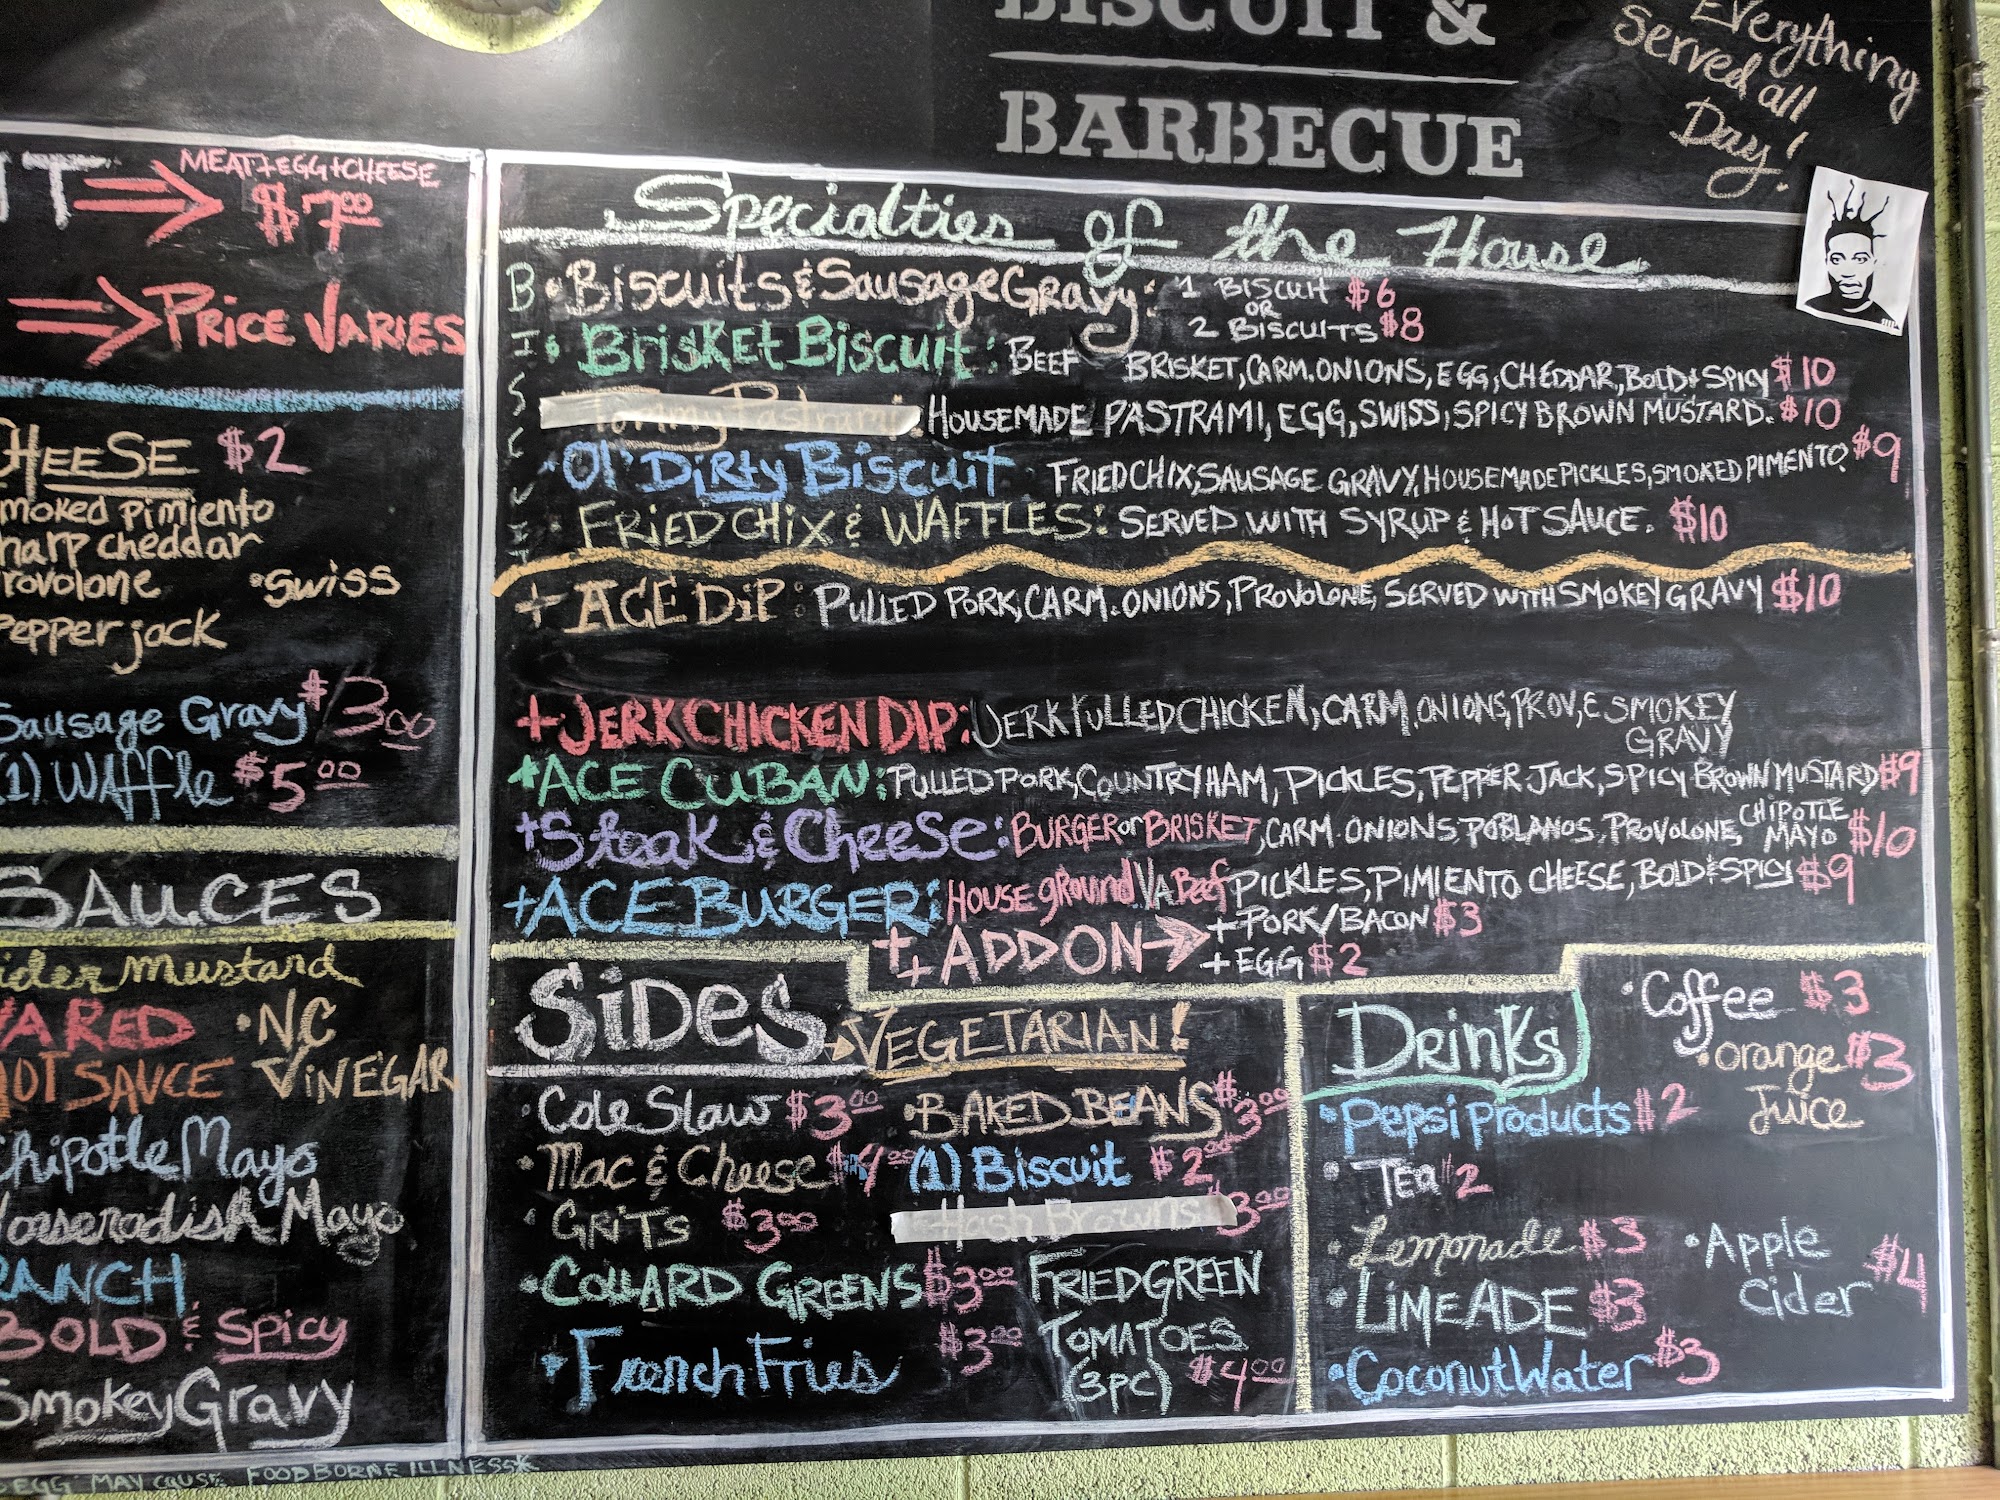 BISCUIT &
BARBECUE
Everything
Served all
Day!
MEAT+EGG+CHEESE
$7.00
PRICE VARIES
CHEESE $2
smoked pimiento
sharp cheddar
provolone •Swiss
Pepper jack
Sausage Gravy $3.00
(1) Waffle $5.00
SAUCES
cider mustard
•NC
HOT SAUCE VINEGAR
Chipotle Mayo
Horseradish Mayo
RANCH
BOLD & Spicy
Smokey Gravy
EGG MAY CAUSE FOODBORNE ILLNESS*
Specialties of the House
BISCUIT
•Biscuits & Sausage Gravy: 1 BISCUIT $6
OR
2 BISCUITS $8
•Brisket Biscuit: BEEF BRISKET, CARM. ONIONS, EGG, CHEDDAR, BOLD & SPICY $10
Tommy Pastrami: HOUSEMADE PASTRAMI, EGG, SWISS, SPICY BROWN MUSTARD. $10
•Ol' Dirty Biscuit FRIED CHIX, SAUSAGE GRAVY, HOUSEMADE PICKLES, SMOKED PIMENTO $9
FRIED CHIX & WAFFLES: SERVED WITH SYRUP & HOT SAUCE. $10
+ ACE DIP: PULLED PORK, CARM. ONIONS, PROVOLONE, SERVED WITH SMOKEY GRAVY $10
+JERK CHICKEN DIP: JERK PULLED CHICKEN, CARM. ONIONS, PROV, & SMOKEY
GRAVY
+ACE CUBAN: PULLED PORK, COUNTRY HAM, PICKLES, PEPPER JACK, SPICY BROWN MUSTARD $9
+Steak & Cheese: BURGER or BRISKET, CARM. ONIONS, POBLANOS, PROVOLONE, CHIPOTLE MAYO $10
+ACE BURGER: HOUSE GROUND VA. Beef PICKLES, PIMIENTO CHEESE, BOLD & SPICY $9
++ADD ON→ +PORK/BACON $3
+EGG $2
SIDES
VEGETARIAN!
•Cole Slaw $3.00 •BAKED BEANS $3.00
•Mac & Cheese $4.00 (1) Biscuit $2.00
•GRITS $3.00 •Hash Browns $3.00
•COLLARD GREENS $3.00 FRIED GREEN
•French Fries $3.00 TOMATOES
(3PC) $4.00
Drinks
•Coffee $3
•Orange $3
Juice
•Pepsi Products $2
•TEA $2
•Lemonade $3
•LIMEADE $3
•Coconut Water $3
•Apple
Cider $4